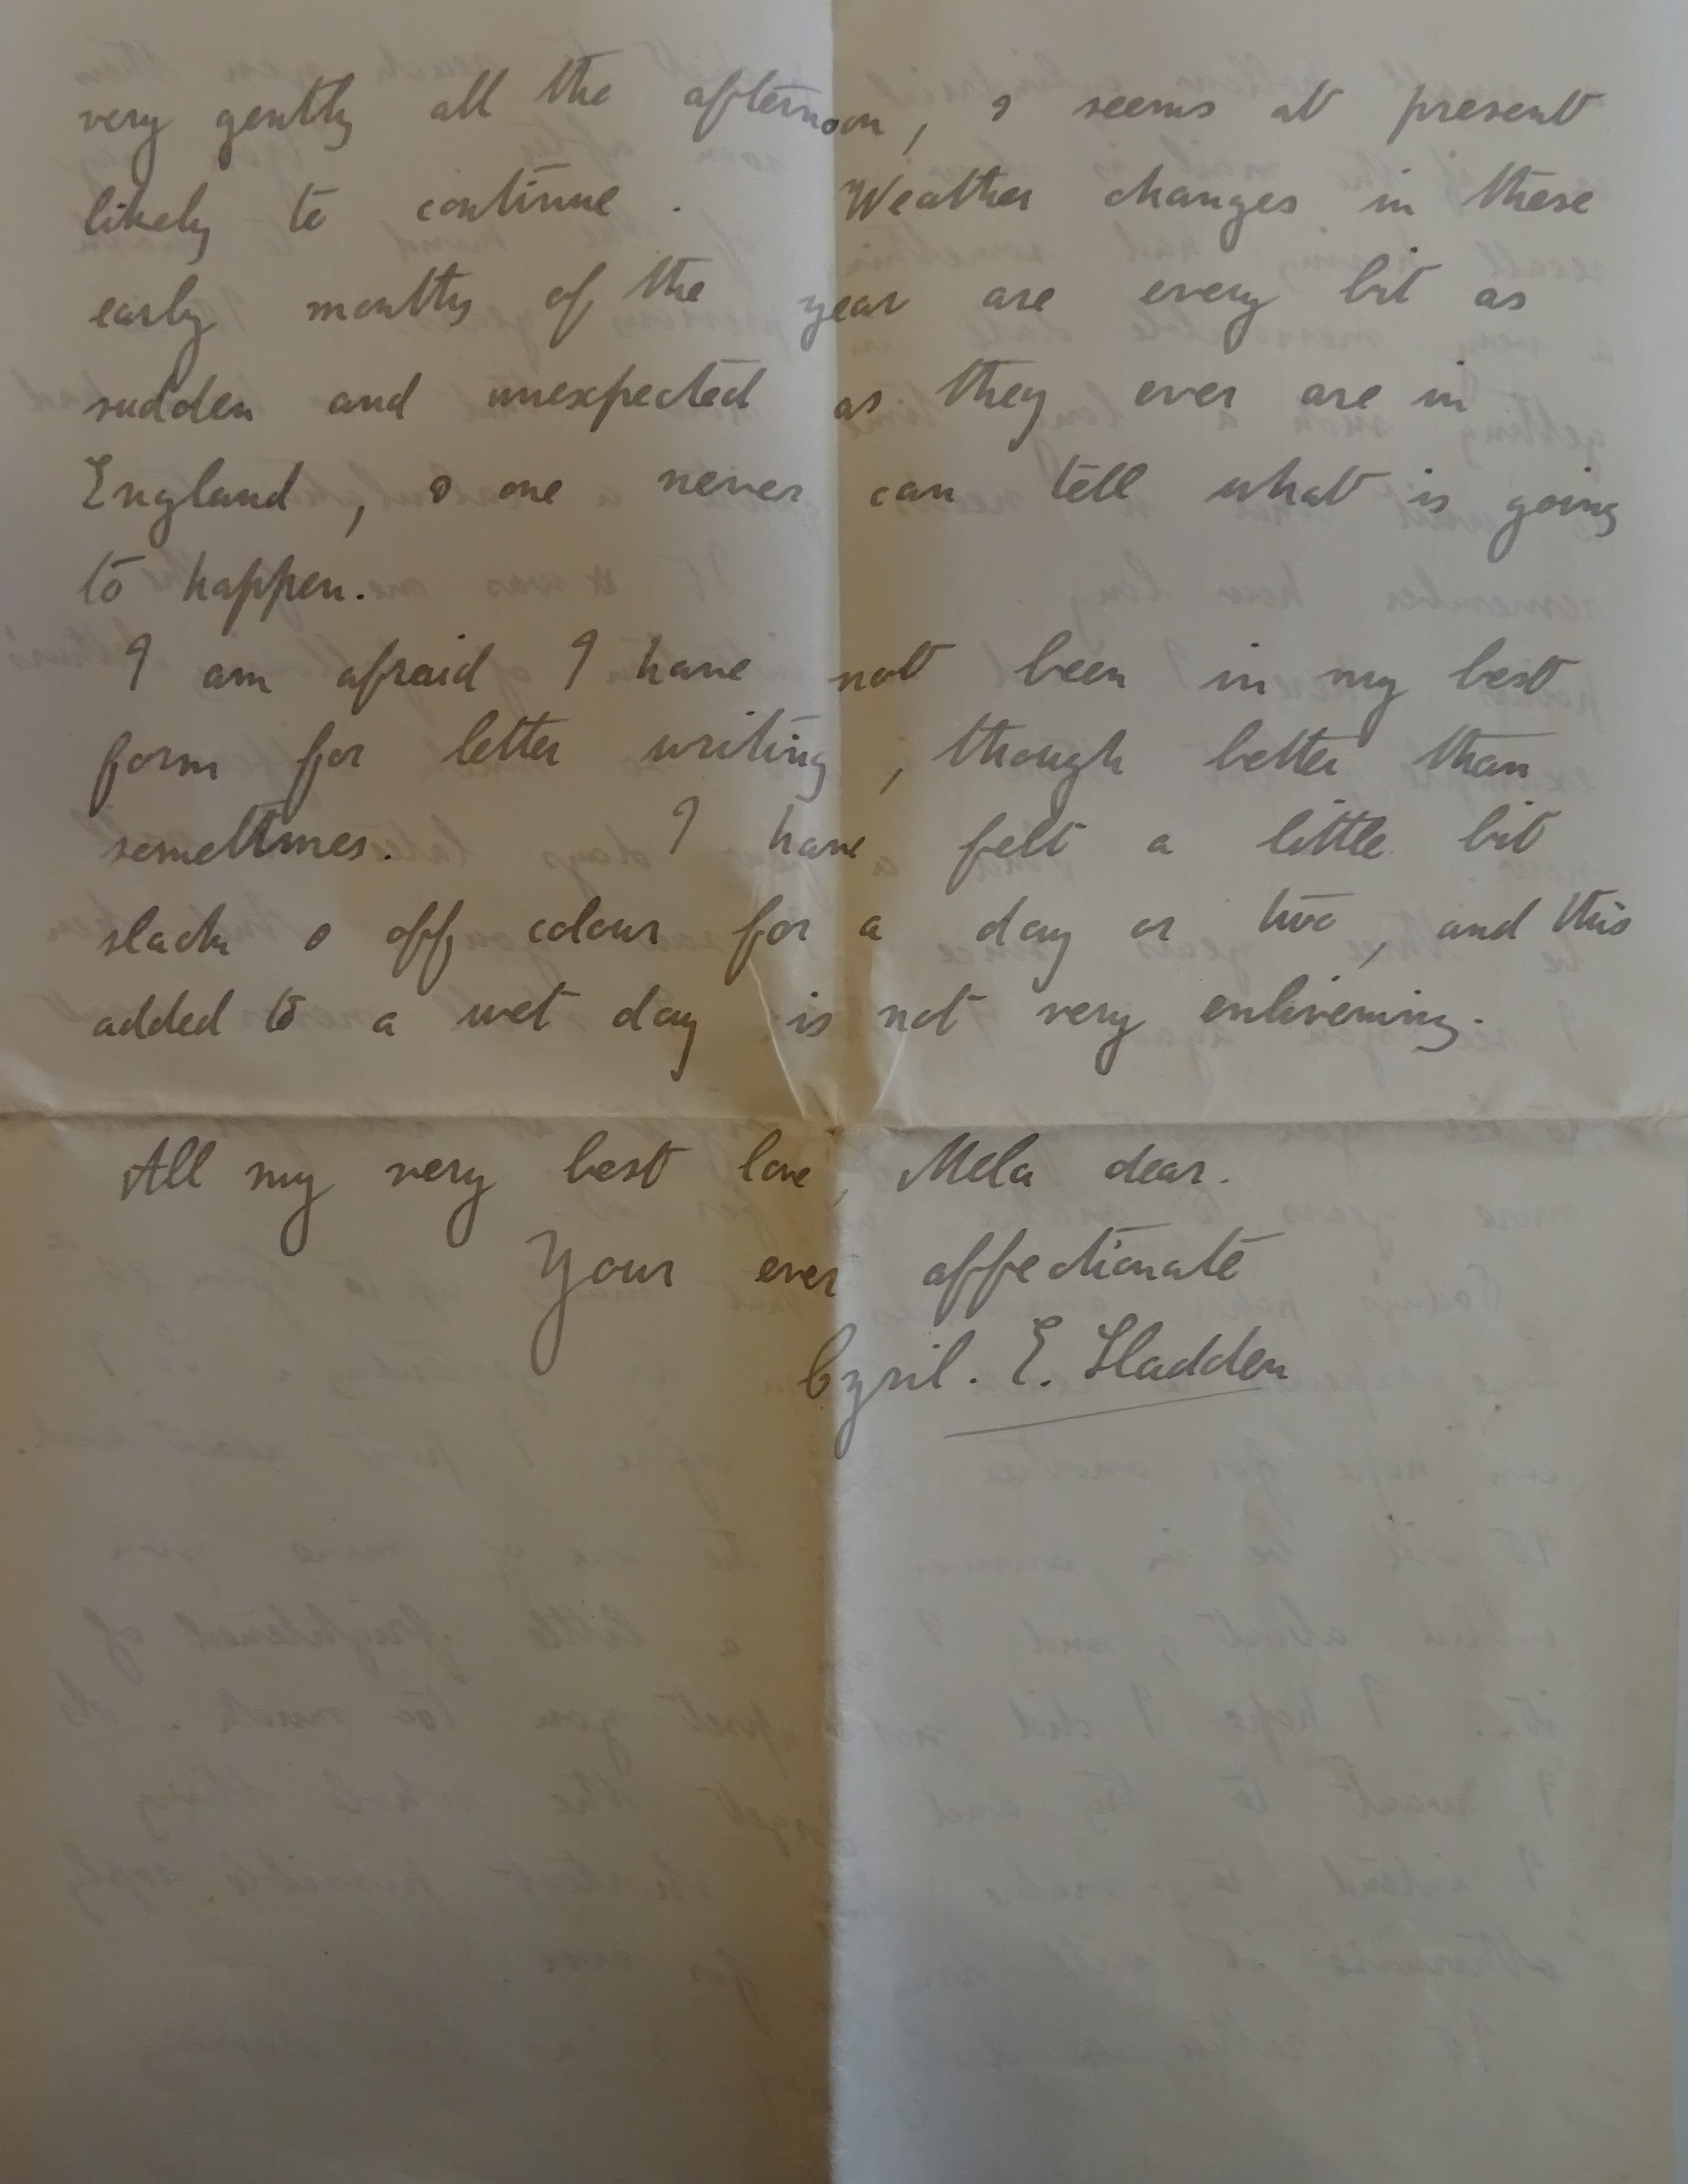 very gently all the afternoon, & seems at present
likely to continue. Weather changes in these
early months of the year are every bit as
sudden and unexpected as they ever are in
England, & one never can tell what is going
to happen.
I am afraid I have not been in my best
form for letter writing, though better than
sometimes. I have felt a little bit
slack & off colour for a day or two, and this
added to a wet day is not very enlivening.
All my very best love, Mela dear.
Your ever affectionate
Cyril. E. Sladden